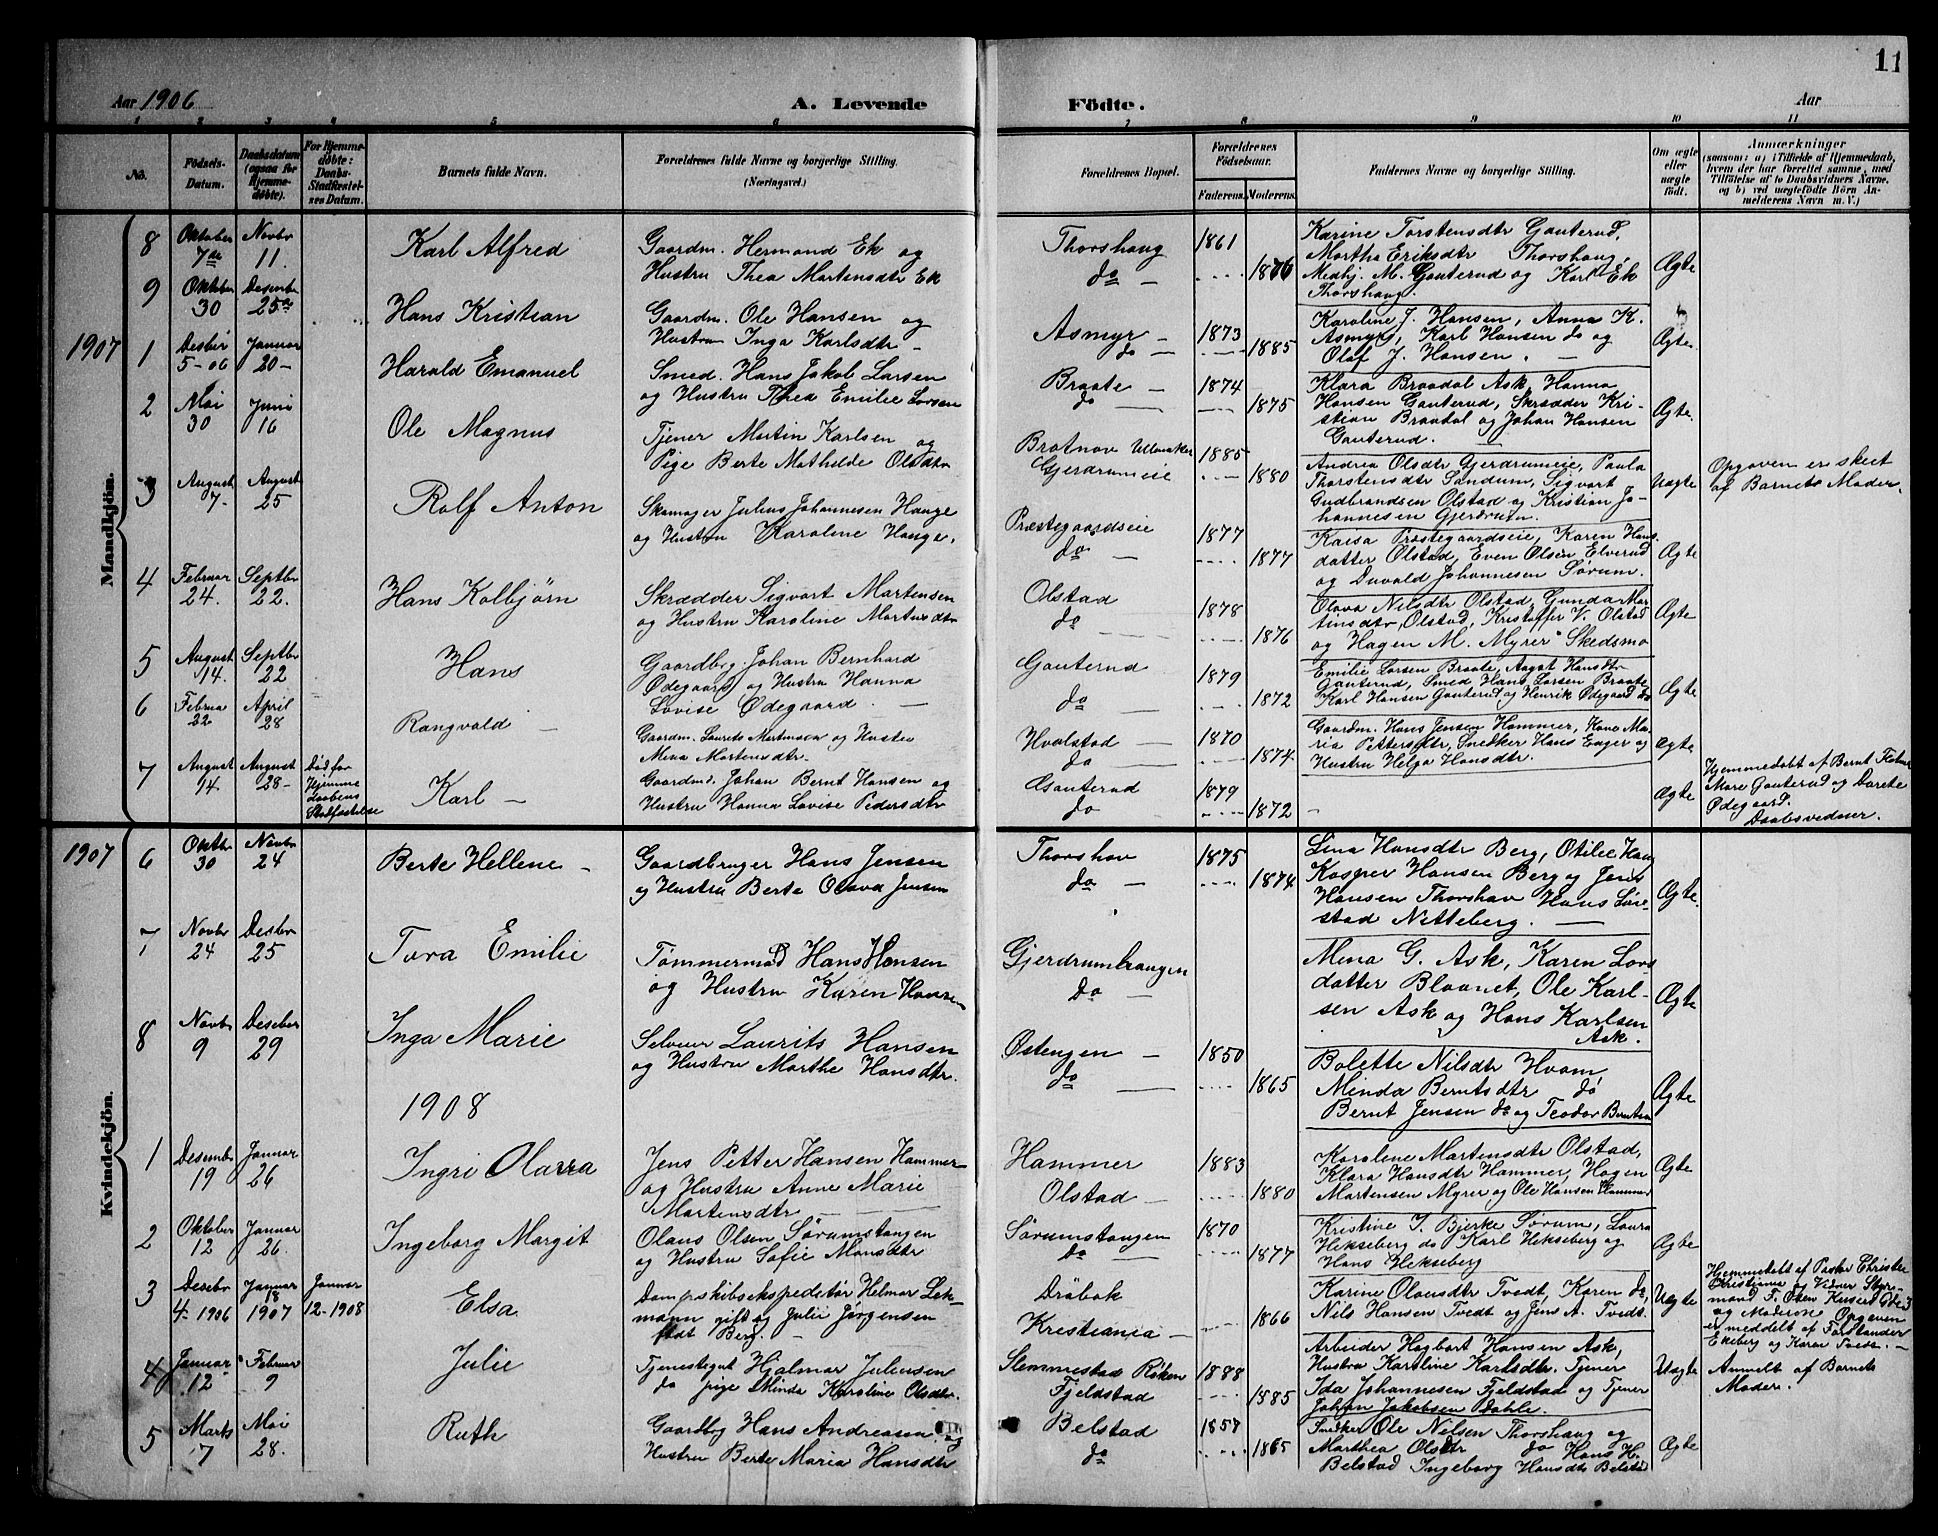 11
Aar 1906
A. Levende
Födte.
Aar
1 2 3 4 5 6 7 8 9 10 11
No.
Födsels-
Datum.
Daabsdatum
(ogsaa for
Hjemme-
døbte).
For Hjemme-
døbte:
Daabs-
Stadfæstel-
ses Datum.
Barnets fulde Navn.
Forældrenes fulde Navne og borgerlige Stilling.
(Næringsvei.)
Forældrenes Bopæl.
Forældrenes
Födselsaar.
Faderens. Moderens.
Faddernes Navne og borgerlige Stilling.
Om ægte
eller
uægte
födt.
Anmærkninger
(saasom: a) i Tilfælde af Hjemmedaab,
hvem der har forrettet samme, med
Tilføielse af to Daabsvidners Navne,
og b) ved uægtefødte Börn An-
melderens Navn m. V.)
Mandkjön.
8
Oktober
7de
Novbr
11.
Karl Alfred
Gaardm. Hermand Ek og
Hustru Thea Martensdtr Ek
Thorshaug
do —
1861
1876
Karine Torstensdtr Gauterud,
Martha Eriksdtr Thorshaug,
Medhj. M. Gauterud og Karl Ek
Thorshaug.
Ægte
9
Oktbr
30
Desember
25de
Hans Kristian
Gaardm. Ole Hansen og
Hustru Inga Karlsdtr —
Asmyr —
do —
1873
1885
Karoline J. Hansen, Anna K.
Asmyr, Karl Hansen do og
Olaf J. Hansen. —
Ægte
1907
1
Desbr
5-06
Januar
20—
Harald Emanuel
Smed. Hans Jakob Larsen
og Hustru Thea Emilie Larsen
Braate —
do —
1874
1875
Klara Braadal Ask, Hanna
Hansen Gauterud, Skrædder Kri-
stian Braadal og Johan Hansen
Gauterud.
Ægte
2
Mai
30
Juni
16
Ole Magnus
Tjener Martin Karlsen og
Pige Berte Mathilde Olsdtr
Brotnov Ullensaker
Gjerdrumeie
1885
1880
Andrea Olsdtr Gjerdrumeie, Paula
Thorstensdtr Sandum, Sigvart
Gudbrandsen Olstad og Kristian Jo-
hannesen Gjerdrum.
Uægte
Opgaven er skeet
af Barnets Moder.
3
August
7-
August
25
Rolf Anton
Skomager Julius Johannesen Hauge
og Hustru Karoline Hauge.
Præstegaardseie
do —
1877
1877
Kaisa Præstegaardseie, Karen Hans
datter Olstad, Even Olsen Elverud
og Duvald Johannesen Sørum.
Ægte
4
Februar
24.
Septbr
22.
Hans Kolbjørn
Skrædder Sigvart Martensen
og Hustru Karoline Martensdtr
Olstad
do —
1878
1876
Olava Nilsdtr Olstad, Gunda Mar-
tinsdtr Olstad, Kristoffer V. Olstad
og Hagen M. Myrer Skedsmo
Ægte
5
August
14.
Septbr
22
Hans
Gaardbrg. Johan Bernhard
Ødegaard og Hustru Hanna
Lovise Ødegaard. —
Gauterud
do —
1879
1872
Emilie Larsen Braate, Aagot Hansdtr
Gauterud, Smed Hans Larsen Braate
Karl Hansen Gauterud og Henrik Ødegaard do
Ægte
6
Februa
22
April
28
Rangvald —
Gaardm. Laurits Martinsen og Hustru
Mina Martensdtr.
Hvalstad —
do —
1870
1874
Gaardm. Hans Jensen Hammer, Kone Ma-
ria Pettersdtr, Snedker Hans Enger og
Hustru Helga Hansdtr.
Ægte
7
August
14.
August
28—
Død før
Hjemme
daabens
Stadfæstelse
Karl —
Gaardmd. Johan Bernt Hansen og
Hustru Hanna Lovise Pedersdtr
Gauterud
do
1879
1872
—
Ægte
Hjemmedøbt af Bernt
Mare Gauterud og Dorete
Ødegaard.
Daabsvedner.
Kvindekjön.
1907
6
Oktbr
30
Novbr
24
Berte Hellene —
Gaardbruger Hans Jensen
og Hustru Berte Olava Jensen
Thorshav
do —
1875
1874
Lina Hansdtr Berg, Otilie Haug
Kasper Hansen Berg og Jens
Hansen Thorshav Hans Løre-
stad Nitteberg. —
Ægte.
7
Novbr
24
Desbr
25
Tora Emilie
Tømmermand Hans Hansen
og Hustru Karen Hansen
Gjerdrumhaugen
do —
Mina G. Ask, Karen Lars
datter Blaanet, Ole Karl-
sen Ask og Hans Karlsen
Ask.
Ægte
8
Novbr
9
Deseber
29
Inga Marie
Selveier Laurits Hansen
og Hustru Marthe Hansdtr.
Østengen —
do —
1850
1865
Bolette Nilsdtr Hvam
Minda Berntsdtr do
Bernt Jensen do og Teodor Berntsen
Ægte
1908
1
Desembr
19
Januar
26
Ingri Olarra
Jens Petter Hansen Hammer
og Hustru Anne Marie
Martensdtr —
Hammer
Olstad —
1883
1880
Karolene Martensdtr Olstad,
Klara Hansdtr Hammer, Hagen
Martensen Myrer og Ole Hansen Hammer
Ægte
2
Oktober
12
Januar
26.
Ingeborg Margit
Olaus Olsen Sørumstangen
og Hustru Sofie Monsdtr
Sørumstangen
do —
1870
1877
Kristine I. Bjerke Sørum, Laura
Hekseberg do Karl Hekseberg og
Hans Hekseberg
Ægte
3
Desebr
4-1906
Januar
18
1907
Januar
12-1908
Elsa
Dampskibsekspeditør Helmar Lek-
mann gift og Julie Jørgensen
født Berg. —
Drøbak
Kristiania —
1866
Karine Olausdtr Tvedt, Karen do,
Nils Hansen Tvedt og Jens A. Tvedt.
Uægte
Hjemmedøbt af Pastor Christie
Christiania og Vidner Styr-
mand T. Olsen
og Moderen. Opgaven
er meddelt af Forstander
Ekeberg og Karen Tvedt. —
4
Januar
12
Februar
9
Julie
Tjenestegut Hjalmar Juliussen
do pige Minda Karoline Olsdtr.
Slemmestad Røken
Fjeldstad
1888
1885
Arbeider Hagbart Hansen Ask,
Hustru Karoline Karlsdtr. Tjener
Ida Johannesen Fjeldstad og Tjener
Johan Jakobsen Dahle.
Uægte
Anmelt af Barnets
Moder.
5
Marts
7
Mai
28.
Ruth
Gaardbrg Hans Andreasen og
Hustru Berte Maria Hansdtr
Belstad
do
1857
1865
Snedker Ole Nilsen Thorshaug og
Marthea Olsdtr do Hans H.
Belstad Ingeborg Hansdtr Belstad
Ægte